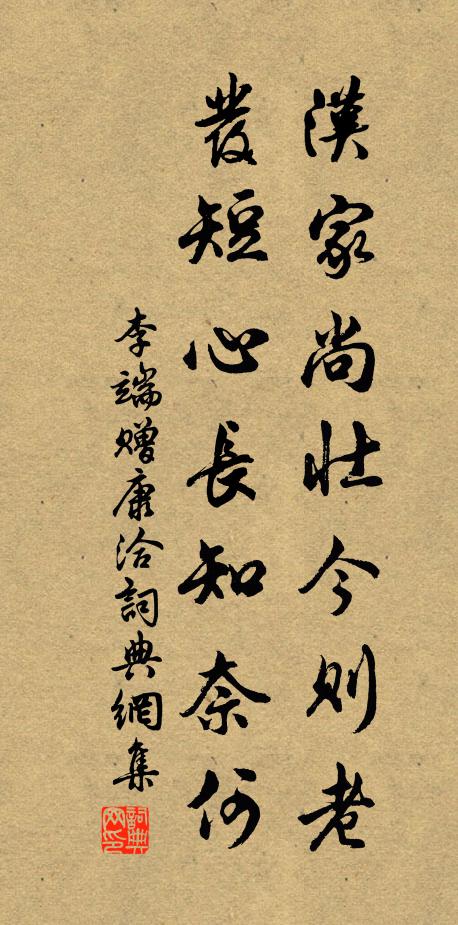 漢家尚壯今則老
發短心長知奈何
李端贈康洽詞典網集
詞典网印